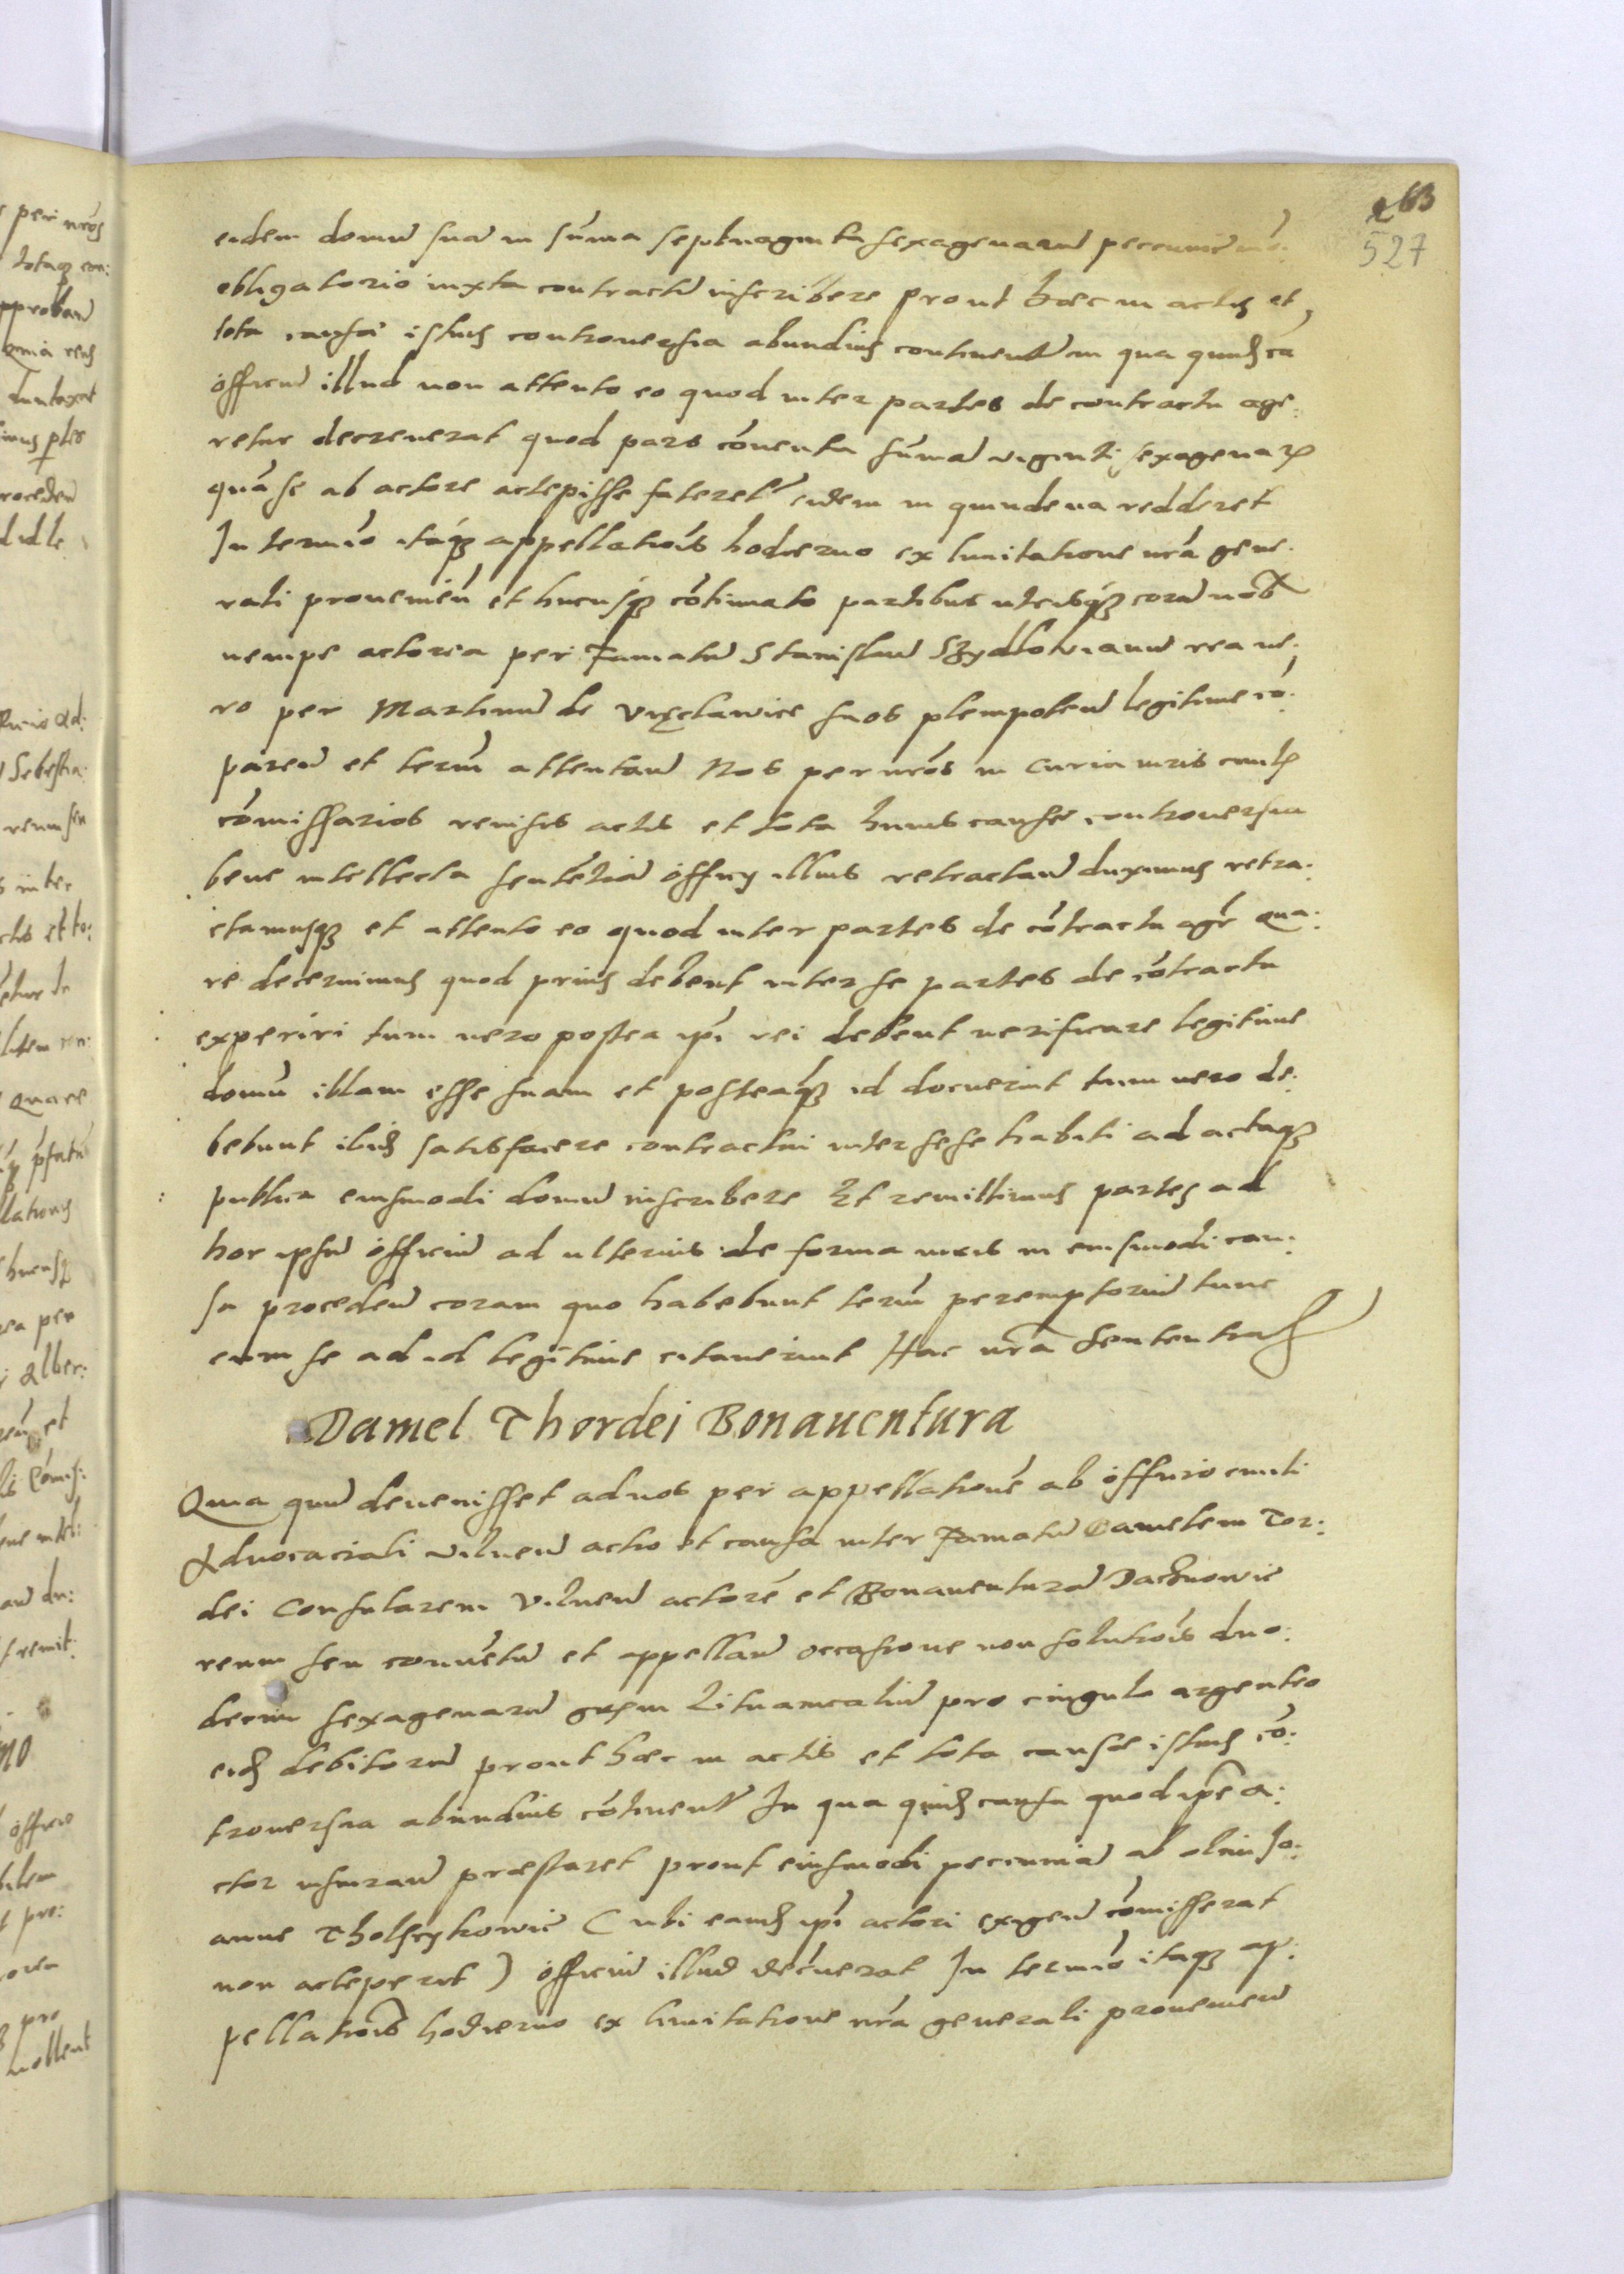 263
527
eidem domū suā in sūma septuaginta sexagenarū peccuniæ in
obligatorio iuxta contractū inscribere prout hæc in actis et
tota causæ istius controuersia abundius continentur in qua quidẽ ca
officiū illud non attento eo quod inter partes de contractu age:
retur decreuerat quod pars cōuenta sūmā viginti sexagenarꝫ
quā se ab actore accepisse fateretr eidem in quindena redderet
In termīo itaqꝫ appellatiōis hodierno ex limitatione nrā gene:
rali proueniēn et hucusqꝫ cōtinuato partibus utrisqꝫ corā nob
nempe actorea per Famatū Stanislaū Szydlowianū rea ue:
ro per Martinū de Vięclawice suos plenipoteñ legitime cō:
pareñ et termī attentañ Nos per nrōs in curia nris cauſ
cōmissarios reuisis actis et tota huius causæ controuersia
bene intellecta sentētiā officij illius retractañ duximus retra:
ctamusqꝫ et attento eo quod inter partes de cōtractu agr̄ qua:
re decernimus quod prius debent inter se partes de cōtractu
experiri tum uero postea ipī rei debent uerificare legitime
domū illam esse suam et posteaqꝫ id docuerint tum uero de:
bebunt ibidē satisfacere contractui inter sese habiti ad actaqꝫ
publica eiusmodi domū inscribere Et remittimus partes ad
hoc ipsū officiū ad ulterius de forma iuris in eiusmodi cau:
sa procedeñ coram quo habebunt termī peremptoriū tunc
cum se ad id legitime citauerint Hac nrā sententia
Daniel Thordei Bonauentura
Quia quū deuenisset ad nos per appellationē ab officio ciuili
Aduocaciali vilneñ actio et causa inter Famatū Danielem Tor:
dei Consularem Vilneñ actorē et Bonauenturā Dachnowic
reum seu conuētū et appellañ occasione non solutiōis duo:
decim sexagenarū grosm Lituanicaliū pro cingulo argenteo
eidē debitorū prout hæc in actis et tota causæ istius cō:
trouersia abundius cōtinentr In qua quidē causa quod ipē a:
ctor iusiurañ præstaret prout eiusmodi peccuniā ab olim Jo:
anne Tholsczykowic (ubi eandē ipī actori exigeñ cōmisserat
non acceperit) officiū illud decreuerat In termīo itaqꝫ ap:
pellatiōis hodierno ex limitatione nrā generali proueñieñ